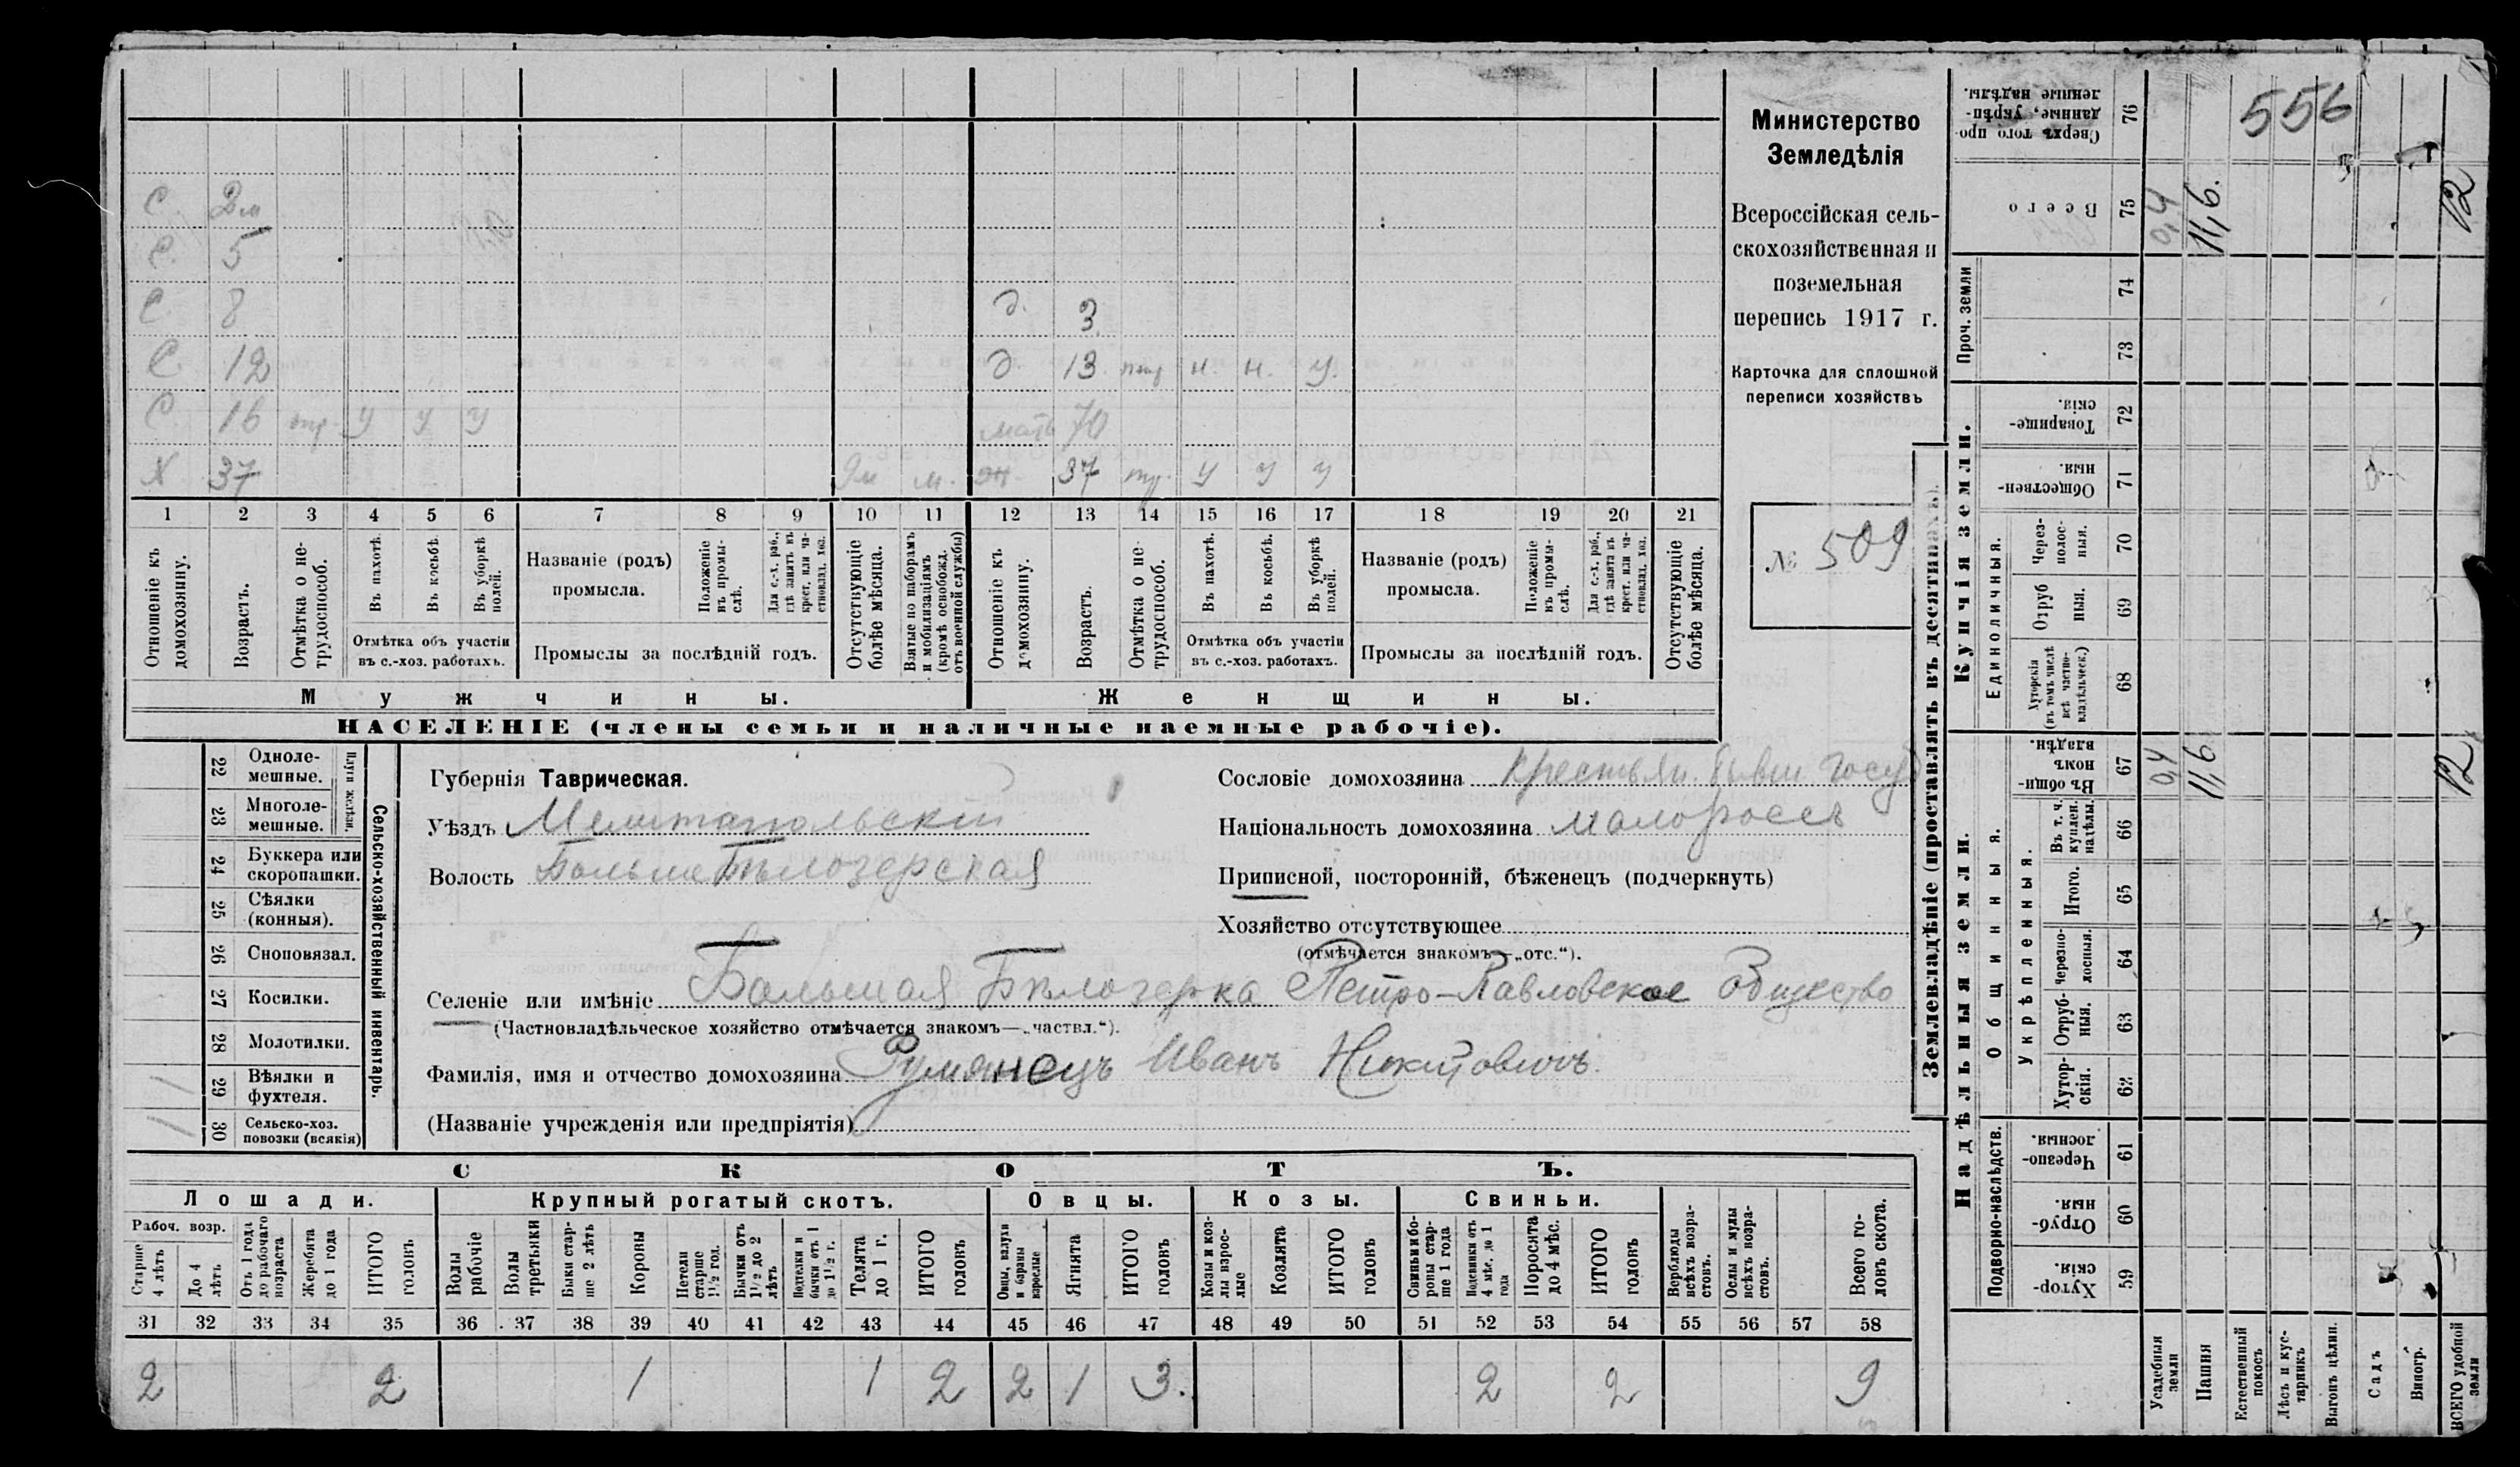 556
Министерство
Земледѣлія
Всероссійская сель-
скохозяйственная и
поземельная
перепись 1917 г.
Карточка для сплошной
переписи хозяйствъ
№ 509
С 2м
С. 5
С. 8 д. 3
С. 12 д 13 н. н. у.
С. 16 у у у мать 70
Х 37 м. ж. 37 у у у
1 2 3 4 5 6 7 8 9 10 11 12 13 14 15 16 17 18 19 20 21
Отношеніе къ домохозяину.
Возрастъ.
Отмѣтка о не-трудоспособ.
Въ пахотѣ.
Въ косьбѣ.
Въ уборкѣ полей.
Отмѣтка объ участіи
въ с.-хоз. работахъ.
Названіе (родъ)
промысла.
Положеніе въ промы-слѣ.
Для с.-х. раб., гдѣ занятъ въ крест. или ча-стновлад. хоз.
Промыслы за послѣдній годъ.
Отсутствующіе болѣе мѣсяца.
Взятые по наборамъ и мобилизаціямъ (кромѣ освобожд. отъ военной службы)
Отношеніе къ домохозяину.
Возрастъ.
Отмѣтка о не-трудоспособ.
Въ пахотѣ.
Въ косьбѣ.
Въ уборкѣ полей.
Отмѣтка объ участіи
въ с.-хоз. работахъ.
Названіе (родъ)
промысла.
Положеніе въ промы-слѣ.
Для с.-х. раб., гдѣ занята въ крест. или ча-стновлад. хоз.
Промыслы за послѣдній годъ.
Отсутствующіе болѣе мѣсяца.
Мужчины.
Женщины.
НАСЕЛЕНІЕ (члены семьи и наличные наемные рабочіе).
Сельско-хозяйственный инвентарь.
Плуги желѣзн.
22 Одноле-мешные.
23 Многоле-мешные.
24 Буккера или скоропашки.
25 Сѣялки (конныя).
26 Сноповязал.
27 Косилки.
28 Молотилки.
29 Вѣялки и фухтеля. 1
30 Сельско-хоз. повозки (всякія) 1
Губернія Таврическая.
Уѣздъ Мелитопольскій
Волость БольшеБѣлозерская
Сословіе домохозяина Крестьян. бывш госуд
Національность домохозяина малороссъ
Приписной, посторонній, бѣженецъ (подчеркнуть)
Хозяйство отсутствующее
(отмѣчается знакомъ—„отс.“).
Селеніе или имѣніе Большая Бѣлозерка Петро-Павловское Общество
(Частновладѣльческое хозяйство отмѣчается знакомъ—„частвл.“).
Фамилія, имя и отчество домохозяина Румянецъ Иванъ Никитовичъ.
(Названіе учрежденія или предпріятія)
СКОТЪ.
Лошади.
Крупный рогатый скотъ.
Овцы.
Козы.
Свиньи.
Рабоч. возр.
Старше 4 лѣтъ
До 4 лѣтъ
Отъ 1 года до рабочаго возраста
Жеребята до 1 года
ИТОГО головъ
Волы рабочіе
Волы третьяки
Быки стар-ше 2 лѣтъ
Коровы
Нетели старше 1½ год.
Бычки отъ 1½ до 2 лѣтъ
Подтелки и бычки отъ 1 до 1½ г.
Телята до 1 г.
ИТОГО головъ
Овцы, валухи и бараны взрослые
Ягнята
ИТОГО головъ
Козы и коз-лы взрос-лые
Козлята
ИТОГО головъ
Свиньи и бо-ровы стар-ше 1 года
Подсвинки отъ 4 мѣс. до 1 года
Поросята до 4 мѣс.
ИТОГО головъ
Верблюды всѣхъ возра-стовъ.
Ослы и мулы всѣхъ возра-стовъ.
Всего го-ловъ скота.
31 32 33 34 35 36 37 38 39 40 41 42 43 44 45 46 47 48 49 50 51 52 53 54 55 56 57 58
2 2 1 1 2 2 1 3. 2 2 9
Землевладѣніе (проставлять въ десятинахъ).
Купчія земли.
Надѣльныя земли.
Сверхъ того про-данные, укрѣп-ленные надѣлы. 76
Всего 75 0,4 11,6. 12
Проч. земли
74
73
Товарище-скія. 72
Обществен-ныя. 71
Единоличныя.
Через-полос-ныя. 70
Отруб ныя. 69
Хуторскія (въ томъ числѣ всѣ частно-владѣльческ.) 68
Въ общи-номъ владѣн. 67 0,4 11,6 12
Общинныя.
Укрѣпленныя.
Въ т. ч. куплен. надѣлы. 66
Итого. 65
Черезпо-лосныя. 64
Отруб-ныя. 63
Хутор-скія. 62
Подворно-наслѣдств.
Черезпо-лосныя. 61
Отруб-ныя. 60
Хутор-скія. 59
Усадебныя земли
Пашня
Естественный покосъ
Лѣсъ и кус-тарникъ
Выгонъ цѣлин.
Садъ
Виногр.
ВСЕГО удобной земли